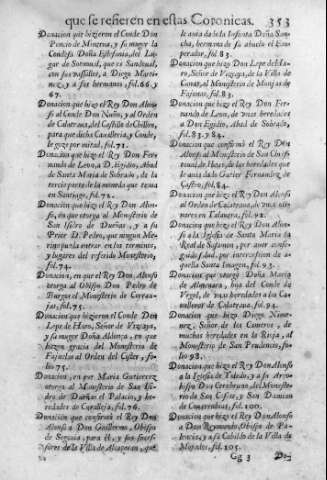 que se refieren en estas Coronicas. 353
Donacion que hizieron el Conde Don
Poncio de Minerva, y su muger la
Condesa Doña Estefania, del
Lugar de Sotmud, que es Sandoual,
con sus vassallos, a Diego Marti-
nez, y a sus hermanos, fol. 66. y
67.
Donacion que hizo el Rey Don Alon-
so al Conde Don Nuño, y al Orden
de Calatraua, del Castillo de Chillon,
para que dicha Caualleria, y Conde,
le goze por mitad, fol. 71.
Donacion que hizo el Rey Don Fer-
nando de Leon, a D. Egidio, Abad
de Santa Maria de Sobrado, de la
tercia parte de la moneda que tenia
en Santiago, fol. 72.
Donacion que hizo el Rey Don Alon-
so, en que otorga al Monesterio de
San Isidro de Dueñas, y a su
Prior D. Pedro, que ningun Me-
rino pueda entrar en los terminos,
y lugares del referido Monesterio,
fol. 74.
Donacion, en que el Rey Don Alonso
otorga al Obispo Don Pedro de
Burgos el Monesterio de
fol. 75.
Donacion que hizieron el Conde Don
Lope de Haro, Señor de Vizcaya,
y su muger Doña Aldonça, en que
hizen gracia del Monesterio de
al Orden del Cister, fo-
lio 75.
Donacion, en que Maria Gutierrez
otorga al Monesterio de San Isi-
dro de Dueñas el Palacio, y he-
redades de fol. 76.
Donacion que confirmò el Rey Don
Alonso a Don Guillermo, Obispo
de Segouia, para èl, y sus sucesso-
res de la Villa de Alcaçaren, que
le auia dado la Infanta Doña San-
cha, hermana de su abuelo el Em-
perador, fol. 83.
Donacion que hizo Don Lope de Ha-
ro, Señor de Vizcaya, de la Villa de
al Monesterio de Monjas de
fol. 83.
Donacion que hizo el Rey Don Fer-
nando de Leon, de vnas heredades
a Don Egidio, Abad de Sobrado,
fol. 83. y 84.
Donacion que confirmò el Rey Don
Alonso al Monesterio de San Chris-
toual de Ibeas, de las heredades que
le auia dado Gutier Fernandez de
Castro, fol. 84.
Donacion que hizo el Rey Don Alonso
al Orden de Calatraua, de vna mitad
en Talauera, fol. 92.
Donacion que hizo el Rey Don Alonso
a la Iglesia de Santa Maria la
Real de Najara, por auer conse-
guido por intercession de
aquella Santa Imagen, fol. 93.
Donacion que otorgò Doña Maria
de Almenara, hija del Conde
de Vrgel, de vnas heredades a los Ca-
ualleros de Calatraua, fol. 94.
Donacion que hizo Diego Xime-
nez, Señor de los Cameros, de
muchas heredades en la Rioja, al
Monesterio de San Prudencio, fo-
lio 98.
Donacion que hizo el Rey Don Alonso
a la Iglesia de Toledo, y a su Arço-
bispo Don Cerebruno, del Monesterio
de San Cosme, y San Damian
de fol. 100.
Donacion que hizo el Rey Don Alonso
a Don Reymundo, Obispo de Pa-
lencia, y a su Cabildo de la Villa de
fol. 105.
Gg 3 Do-